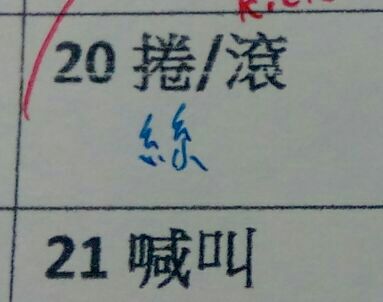 20 捲/滾
絲
21 喊叫